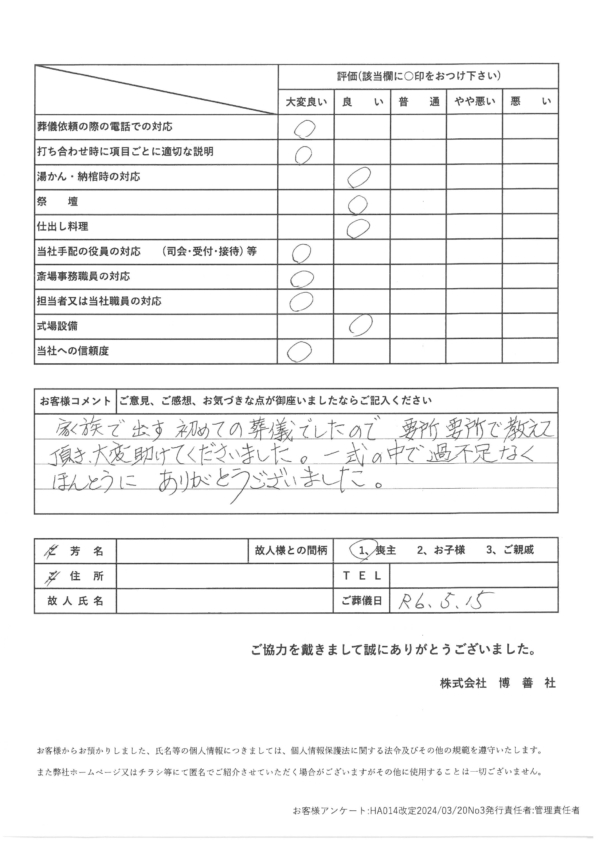 評価(該当欄に○印をおつけ下さい)
大変良い 良 い 普 通 やや悪い 悪 い
葬儀依頼の際の電話での対応 ○
打ち合わせ時に項目ごとに適切な説明 ○
湯かん・納棺時の対応 ○
祭 壇 ○
仕出し料理 ○
当社手配の役員の対応 (司会・受付・接待)等 ○
斎場事務職員の対応 ○
担当者又は当社職員の対応 ○
式場設備 ○
当社への信頼度 ○
お客様コメント ご意見、ご感想、お気づきな点が御座いましたならご記入ください
家族で出す初めての葬儀でしたので 要所要所で教えて
頂き、大変助けてくださいました。一式の中で過不足なく
ほんとうに ありがとうございました。
ご芳名 故人様との間柄 1、喪主 2、お子様 3、ご親戚
ご住所 TEL
故人氏名 ご葬儀日 R6.5.15
ご協力を戴きまして誠にありがとうございました。
株式会社 博善社
お客様からお預かりしました、氏名等の個人情報につきましては、個人情報保護法に関する法令及びその他の規範を遵守いたします。
また弊社ホームページ又はチラシ等にて匿名でご紹介させていただく場合がございますがその他に使用することは一切ございません。
お客様アンケート:HA014改定2024/03/20No3発行責任者:管理責任者